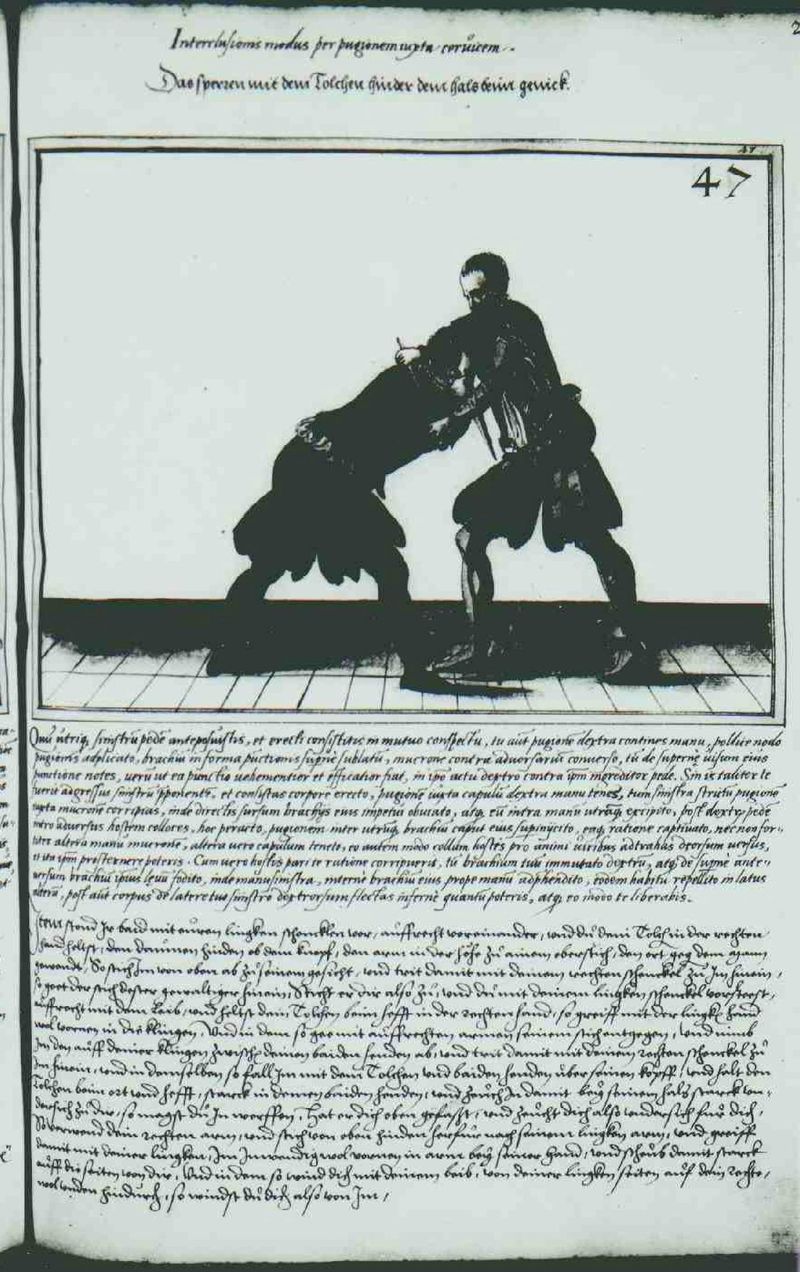 2
Interclusionis modus per pugionem iuxta ceruicem.
Das sperren mit dem Tolchen hinder dem hals beim genick.
47
47
sinistrũ pedẽ anteposuistis, et erecti consistitis in mutuo conspectu, tu aũt pugionẽ dextra contines manu, pollice nodo
pugionis adplicato, brachiũ in forma punctionis supernè sublatũ, mucrone contra aduersariũ conuerso, tũ de supernè uisum eius
punctione notes, uerũ ut ea punctio uehementior et efficatior fiat, in ipo actu dextro contra ipm ingreditor pede. Sin is taliter te
adgressus sinistrũ pponentẽ, et consistas corpore erecto, pugionẽ iuxta capulũ dextra manu tenes, tum sinistra strictũ pugionẽ
iuxta mucronẽ corripias, inde directis sursum brachijs eius impetui obuiato, atq; eũ intra manũ utrãq; excipito, post dextrũ pedẽ
intro aduersus hostem colloces, hoc peracto, pugionem inter utrũq; brachiũ caput eius supinijcito, eaq; ratione captiuato,
altera manu mucronẽ, altera uero capulum teneto, eo autem modo collum hostis pro animi uiribus ad te adtrahas deorsum uersus,
ita ipm prosternere poteris. Cum uero hostis pari te ratione corripuerit, tũ brachium tuũ immutato dextrũ, atq; de supernè
brachiũ ipsius leuũ fodito, inde manu sinistra, internè brachiũ eius prope manũ adprehendito, eodem habitu repellito in latus
alterũ, post aũt corpus de latere tuo sinistro dextrorsum flectas infernè quantũ poteris, atq; eo modo te liberabis.
Item stond Ir baid mit euren lingken schencklen vor, auffrecht voreinander, vnd du dein Tolch in der rechten
hand heltst, den daumen hinden ob dem knopf, den arm in der höhe zu ainem oberstich, den ort geg dem mann
gewendt, So stich Im von oben ab zu seinem gesicht, vnd trit damit mit deinem rechten schenckel zu Im hinein,
so geet der stich dester gewaltiger hinein, Sticht er dir also zu, vnd du mit deinem lingken schenckel vorsteest,
auffrecht mit dem leib, vnd heltst dein Tolchen beim hefft in der rechten hand, so greiff mit der lingkẽ hand
wol vornen in die klingen, Vnd in dem so gee mit auffrechten armen seinem stich entgegen, vnd nimb
Im den auff deiner klingen zwischẽ deinen baiden henden ab, vnd trit damit mit deinem rechten schenckel zu
Im hinein, vnd in demselben so fall Im mit dem Tolchen vnd baiden henden über seinen kopff, vnd halt den
Tolchen beim ort vnd hefft, starck in deinen baiden henden, vnd zeuch In damit bey seinem hals starck
zu dir, so magst du In werffen, Hat er dich oben gefasst, vnd zeucht dich also vndersich für dich,
So verwend dein rechten arm, vnd stich von oben hinden herfür nach seinem lingken arm, vnd greiff
damit mit deiner lingken, Im Inwendig wol vornen in arm bey seiner hand, vnd scheub damit starck
auff die seiten von dir, Vnd in dem so wind dich mit deinem leib, von deiner lingken seiten auf dein rechte,
wol vnden hindurch, so windst du dich also von Im,